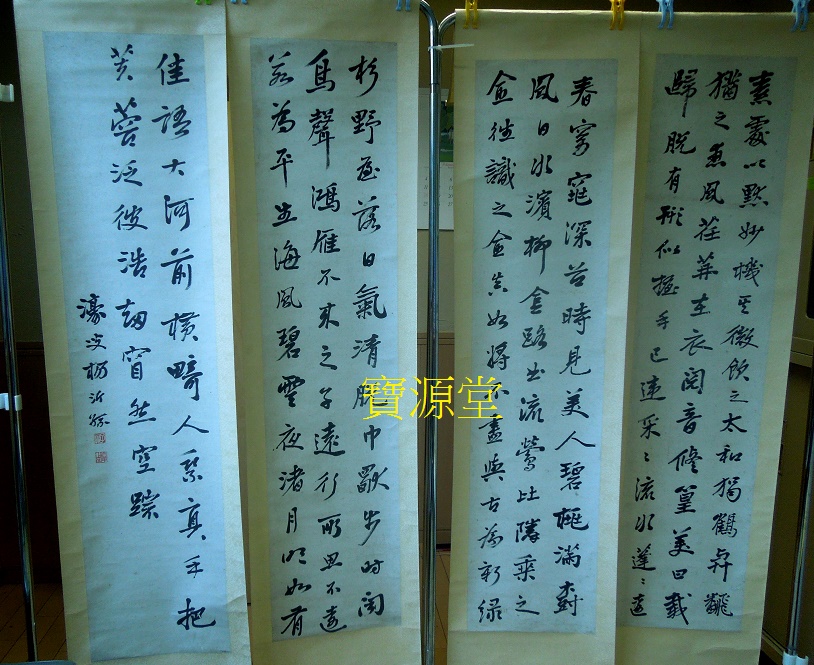 素處以默妙機其微飲之太和獨鶴與飛
猶之惠風荏苒在衣閱音修篁美曰載
歸脫有形似握手已違采〻流水蓬〻遠
春窈窕深谷時見美人碧桃滿樹
風日水濱柳陰路曲流鶯比隣乘之
愈往識之愈真如將不盡與古為新綠
杉野屋落日氣清脫巾獨步時聞
鳥聲鴻雁不來之子遠行所思不遠
若為平生海風碧雲夜渚月明如有
佳語大河前橫畸人乘真手把
芙蓉泛彼浩劫窅然空踪
濠叟楊沂孫
寶源堂